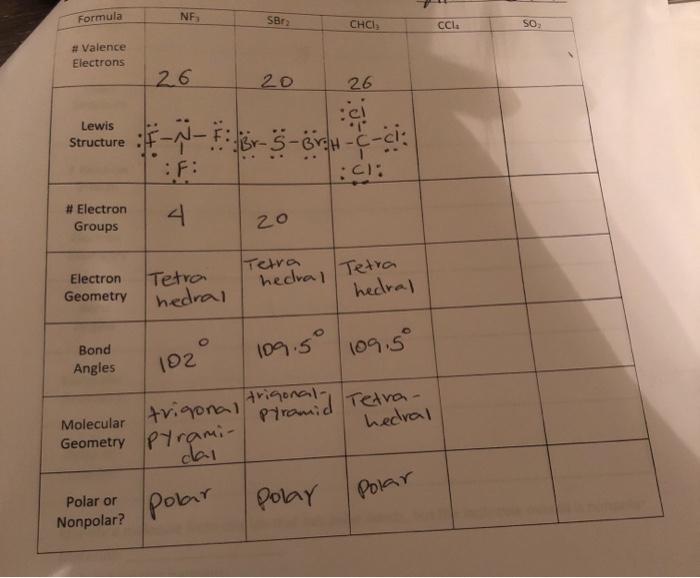 Formula NF₃ SBr₂ CHCl₃ CCl₄ SO₂
# Valence
Electrons
26 20 26
Lewis
Structure
:F-N-F: :Br-S-Br: H-C-Cl:
:F: :Cl: :Cl:
# Electron
Groups
4 20
Electron
Geometry
Tetra
hedral
Tetra
hedral
Tetra
hedral
Bond
Angles
102° 109.5° 109.5°
Molecular
Geometry
trigonal
pyrami-
dal
trigonal-
pyramid
Tetra-
hedral
Polar or
Nonpolar?
polar polar polar